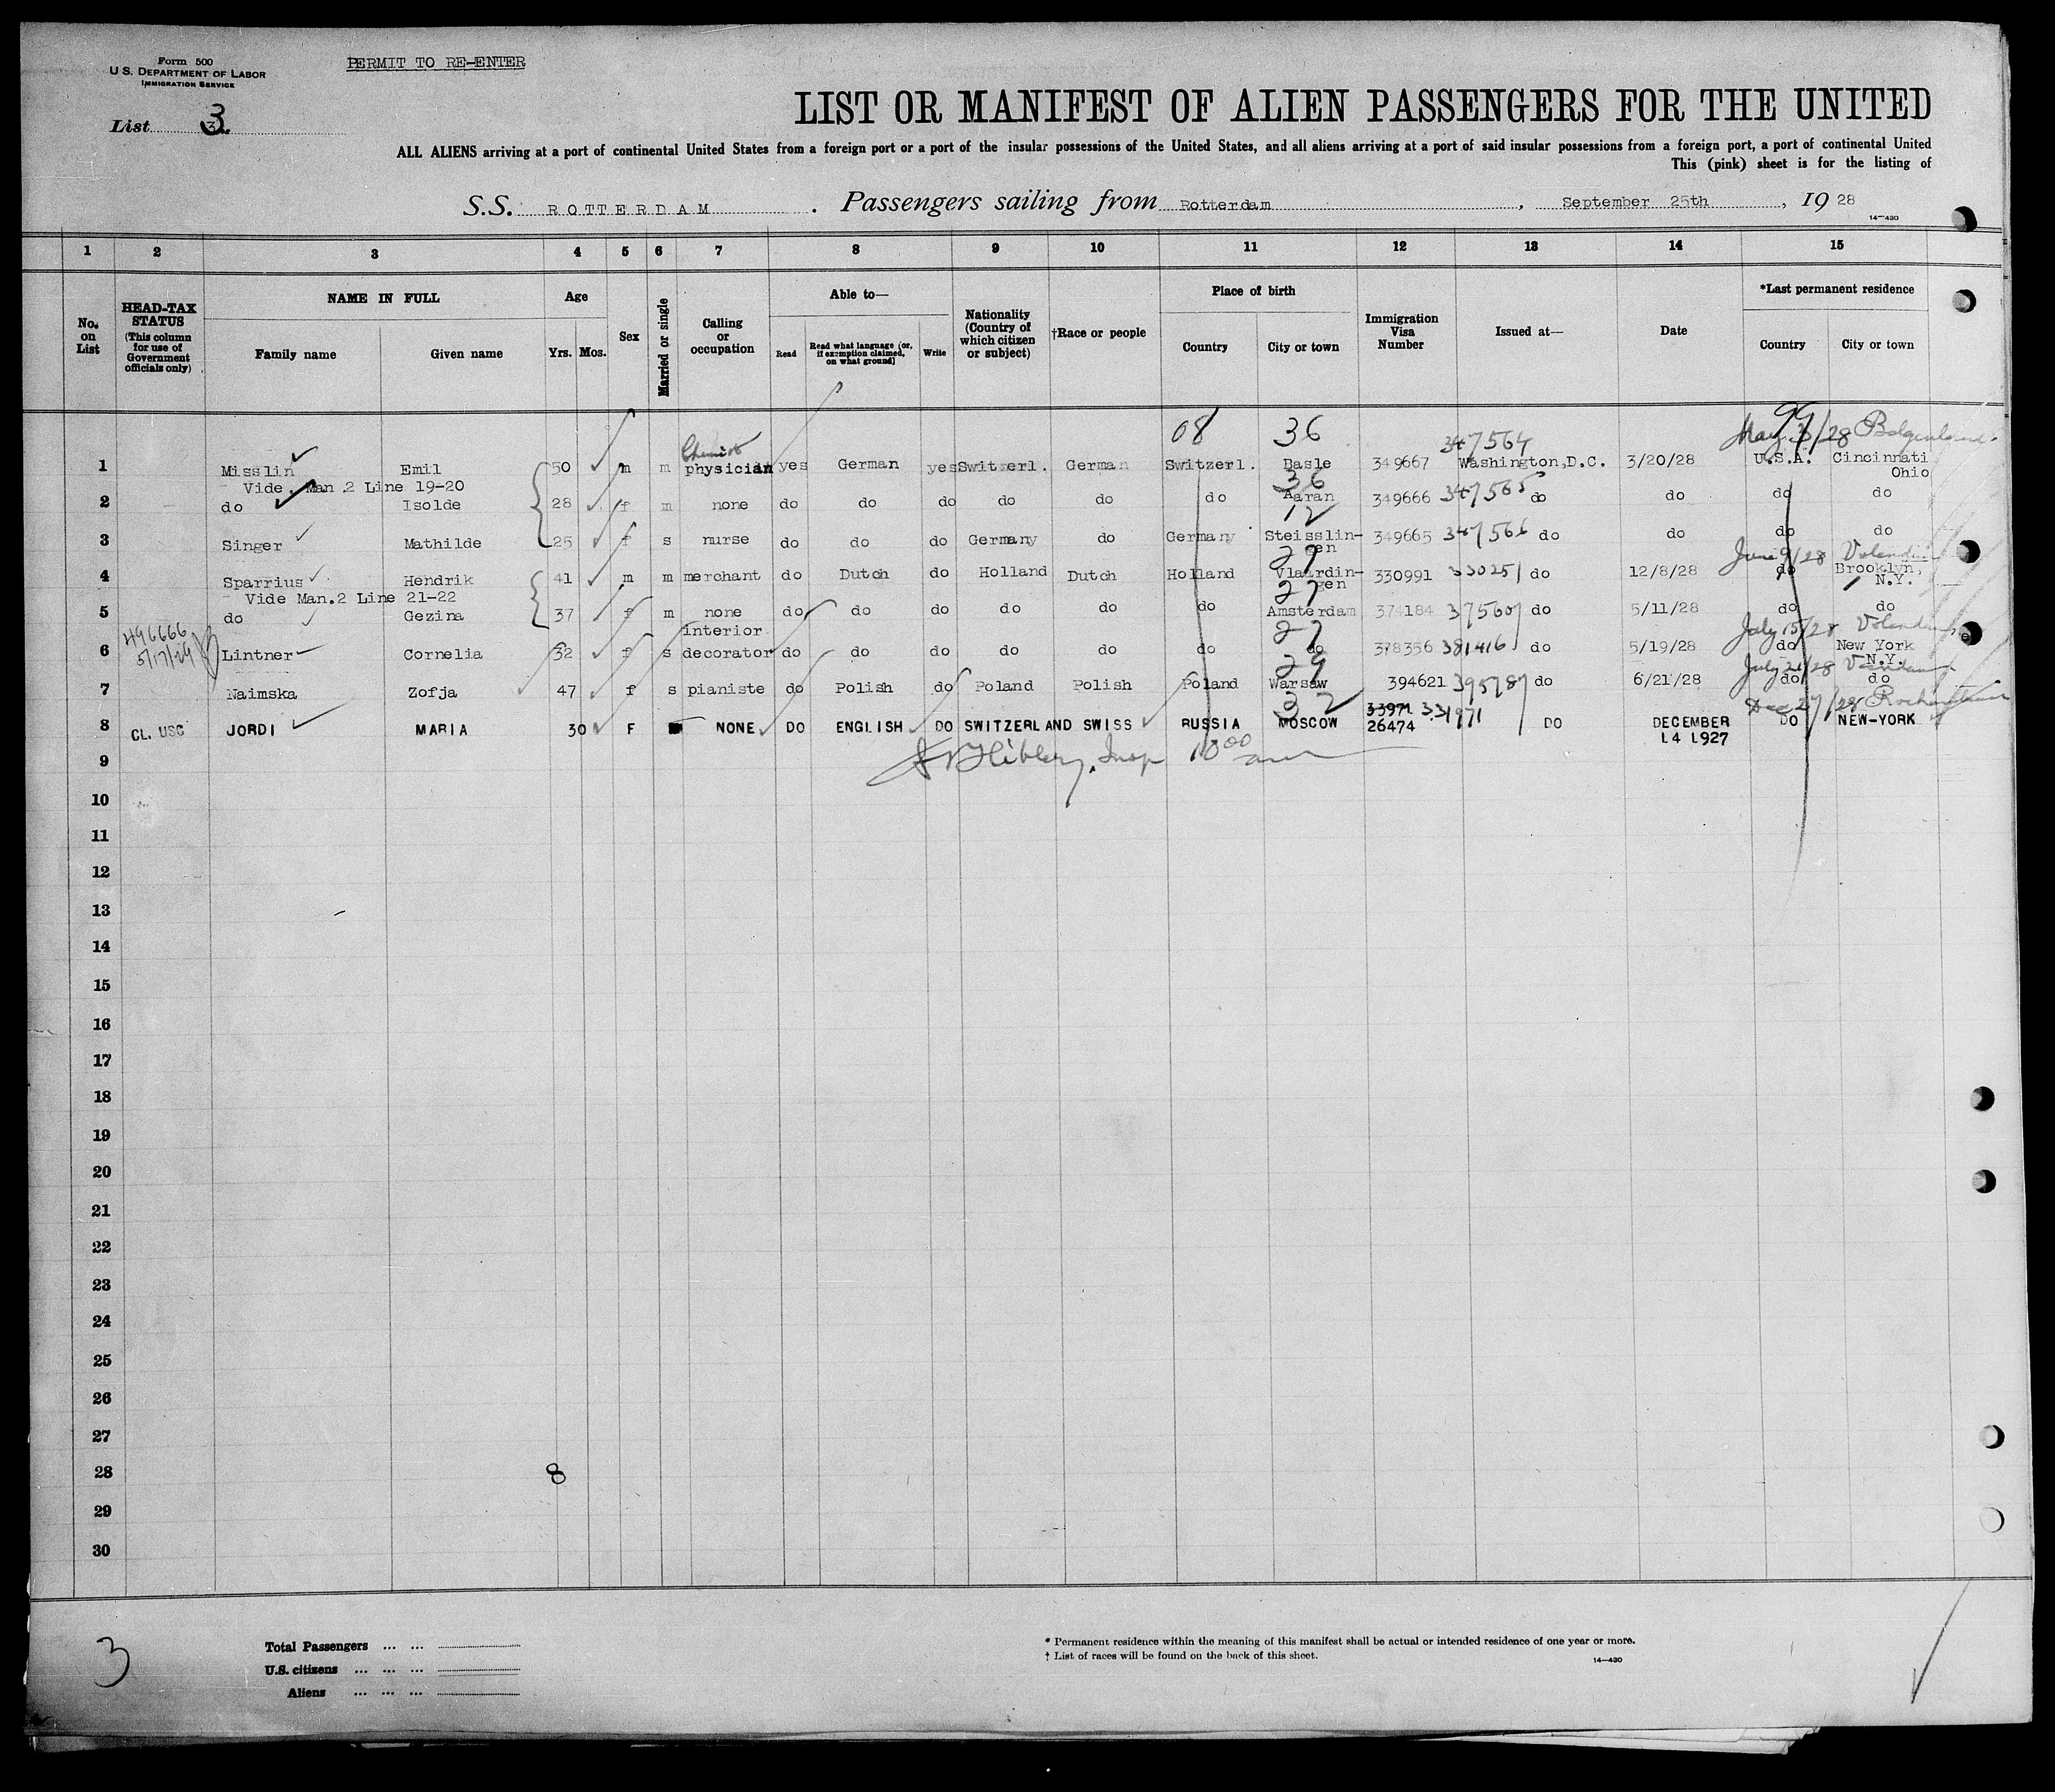 Form 500
U.S. DEPARTMENT OF LABOR
IMMIGRATION SERVICE
PERMIT TO RE-ENTER
List 3
LIST OR MANIFEST OF ALIEN PASSENGERS FOR THE UNITED
ALL ALIENS arriving at a port of continental United States from a foreign port or a port of the insular possessions of the United States, and all aliens arriving at a port of said insular possessions from a foreign port, a port of continental United
This (pink) sheet is for the listing of
S.S. ROTTERDAM . Passengers sailing from Rotterdam , September 25th , 19 28
14—430
1 2 3 4 5 6 7 8 9 10 11 12 13 14 15
No. on List
HEAD-TAX STATUS (This column for use of Government officials only)
NAME IN FULL
Family name Given name
Age
Yrs. Mos.
Sex
Married or single
Calling or occupation
Able to—
Read Read what language (or, if exemption claimed, on what ground) Write
Nationality (Country of which citizen or subject)
†Race or people
Place of birth
Country City or town
Immigration Visa Number
Issued at—
Date
*Last permanent residence
Country City or town
08 36 347564 99 May 3/28 Belgenland
Chemist
1 Misslin Emil 50 m m physician yes German yes Switzerl. German Switzerl. Basle 349667 Washington,D.C. 3/20/28 U.S.A. Cincinnati Ohio
Vide. Man.2 Line 19-20
36
2 do Isolde 28 f m none do do do do do do Aaran 349666 347565 do do do do
12
3 Singer Mathilde 25 f s nurse do do do Germany do Germany Steisslingen 349665 347566 do do do do
27 June 9/28 Volendam
4 Sparrius Hendrik 41 m m merchant do Dutch do Holland Dutch Holland Vlaardin-gen 330991 330251 do 12/8/28 do Brooklyn, N.Y.
Vide Man.2 Line 21-22
27
5 do Gezina 37 f m none do do do do do do Amsterdam 374184 375607 do 5/11/28 do do
496666
5/17/29
27 July 15/28 Volendam
6 Lintner Cornelia 32 f s interior decorator do do do do do do do 378356 381416 do 5/19/28 do New York N.Y.
29 July 21/28
7 Naimska Zofja 47 f s pianiste do Polish do Poland Polish Poland Warsaw 394621 395787 do 6/21/28 do do
32 Dec 27/28
8 CL. USC JORDI MARIA 30 F NONE DO ENGLISH DO SWITZERLAND SWISS RUSSIA MOSCOW 33971 331971 26474 DO DECEMBER 14 1927 DO NEW-YORK
Insp 10 00 am
9
10
11
12
13
14
15
16
17
18
19
20
21
22
23
24
25
26
27
28 8
29
30
3
Total Passengers ... ...
U.S. citizens ... ... ...
Aliens ... ... ...
* Permanent residence within the meaning of this manifest shall be actual or intended residence of one year or more.
† List of races will be found on the back of this sheet.
14—430